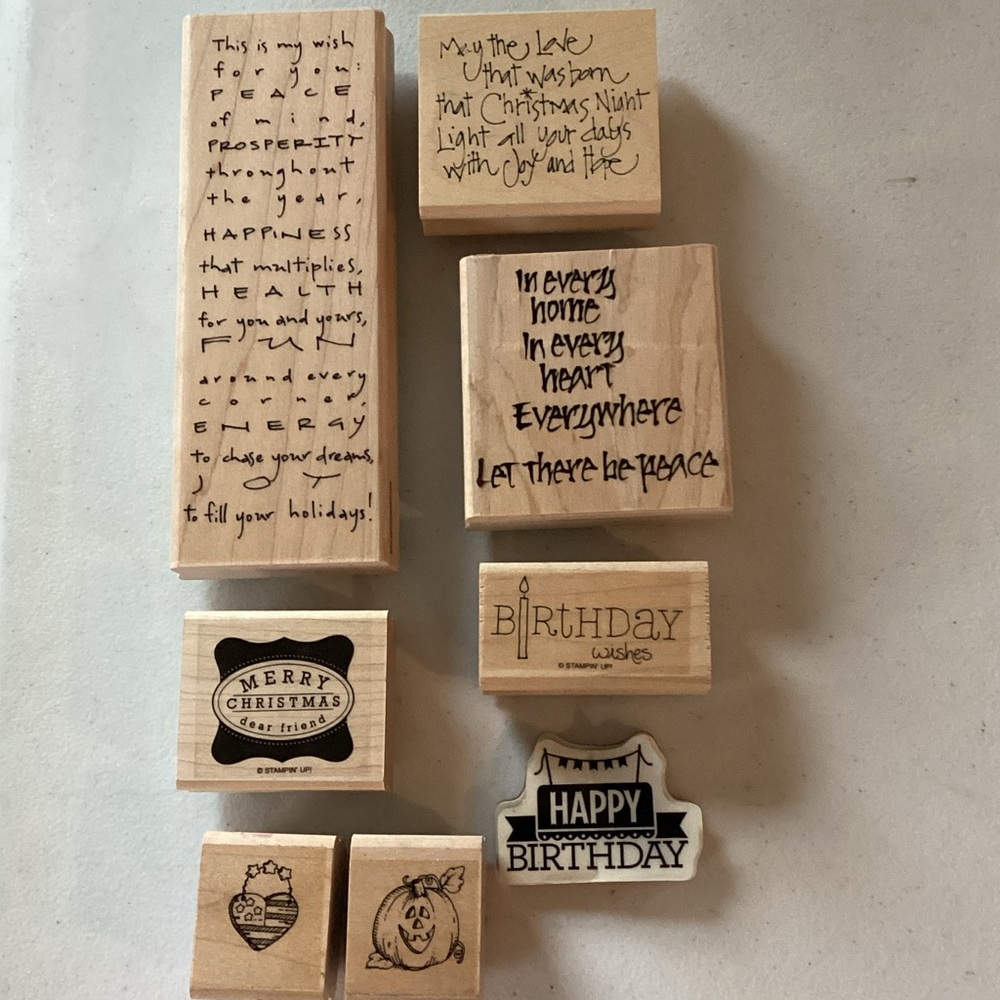 This is my wish
for you:
PEACE
of mind,
PROSPERITY
throughout
the year,
HAPPINESS
that multiplies,
HEALTH
for you and yours,
FUN
around every
corner,
ENERGY
to chase your dreams,
JOY
to fill your holidays!
May the Love
that was born
that Christmas Night
Light all your days
with Joy and Hope
In every
home
In every
heart
Everywhere
Let there be peace
BIRTHDAY
wishes
© STAMPIN' UP!
MERRY
CHRISTMAS
dear friend
© STAMPIN' UP!
HAPPY
BIRTHDAY